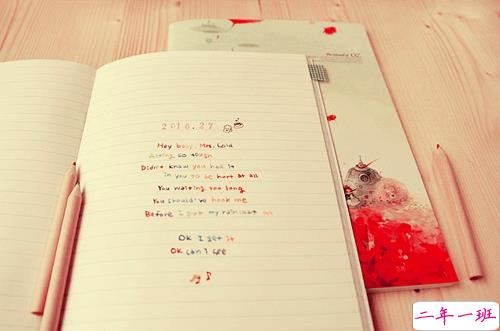 2010.27
Hey boy, Mrs. Cold
Acting so tough
Didn't know you had it
in you to be hurt at all
You waiting too long
You should've hook me
Before I put my raincoat on
OK I get it
OK can I see
二年一班